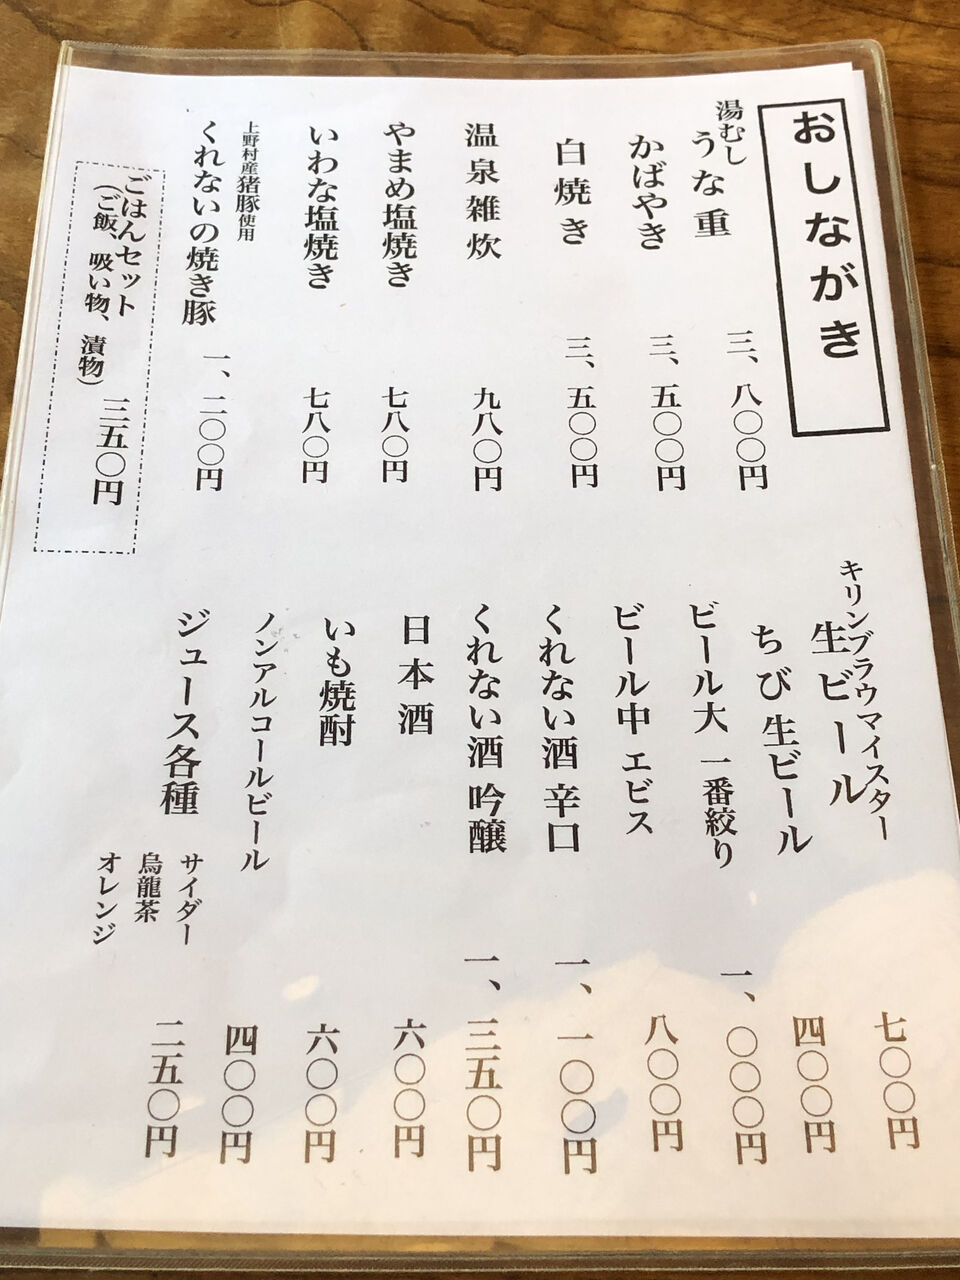 おしながき
湯むし
うな重 三、八〇〇円
かばやき 三、五〇〇円
白焼き 三、五〇〇円
温泉雑炊 九八〇円
やまめ塩焼き 七八〇円
いわな塩焼き 七八〇円
上野村産猪豚使用
くれないの焼き豚 一、二〇〇円
ごはんセット
(ご飯、吸い物、漬物) 三五〇円
キリンブラウマイスター
生ビール 七〇〇円
ちび生ビール 四〇〇円
ビール大 一番絞り 一、〇〇〇円
ビール中 エビス 八〇〇円
くれない酒 辛口 一、一〇〇円
くれない酒 吟醸 一、三五〇円
日本酒 六〇〇円
いも焼酎 六〇〇円
ノンアルコールビール 四〇〇円
ジュース各種 二五〇円
サイダー
烏龍茶
オレンジ